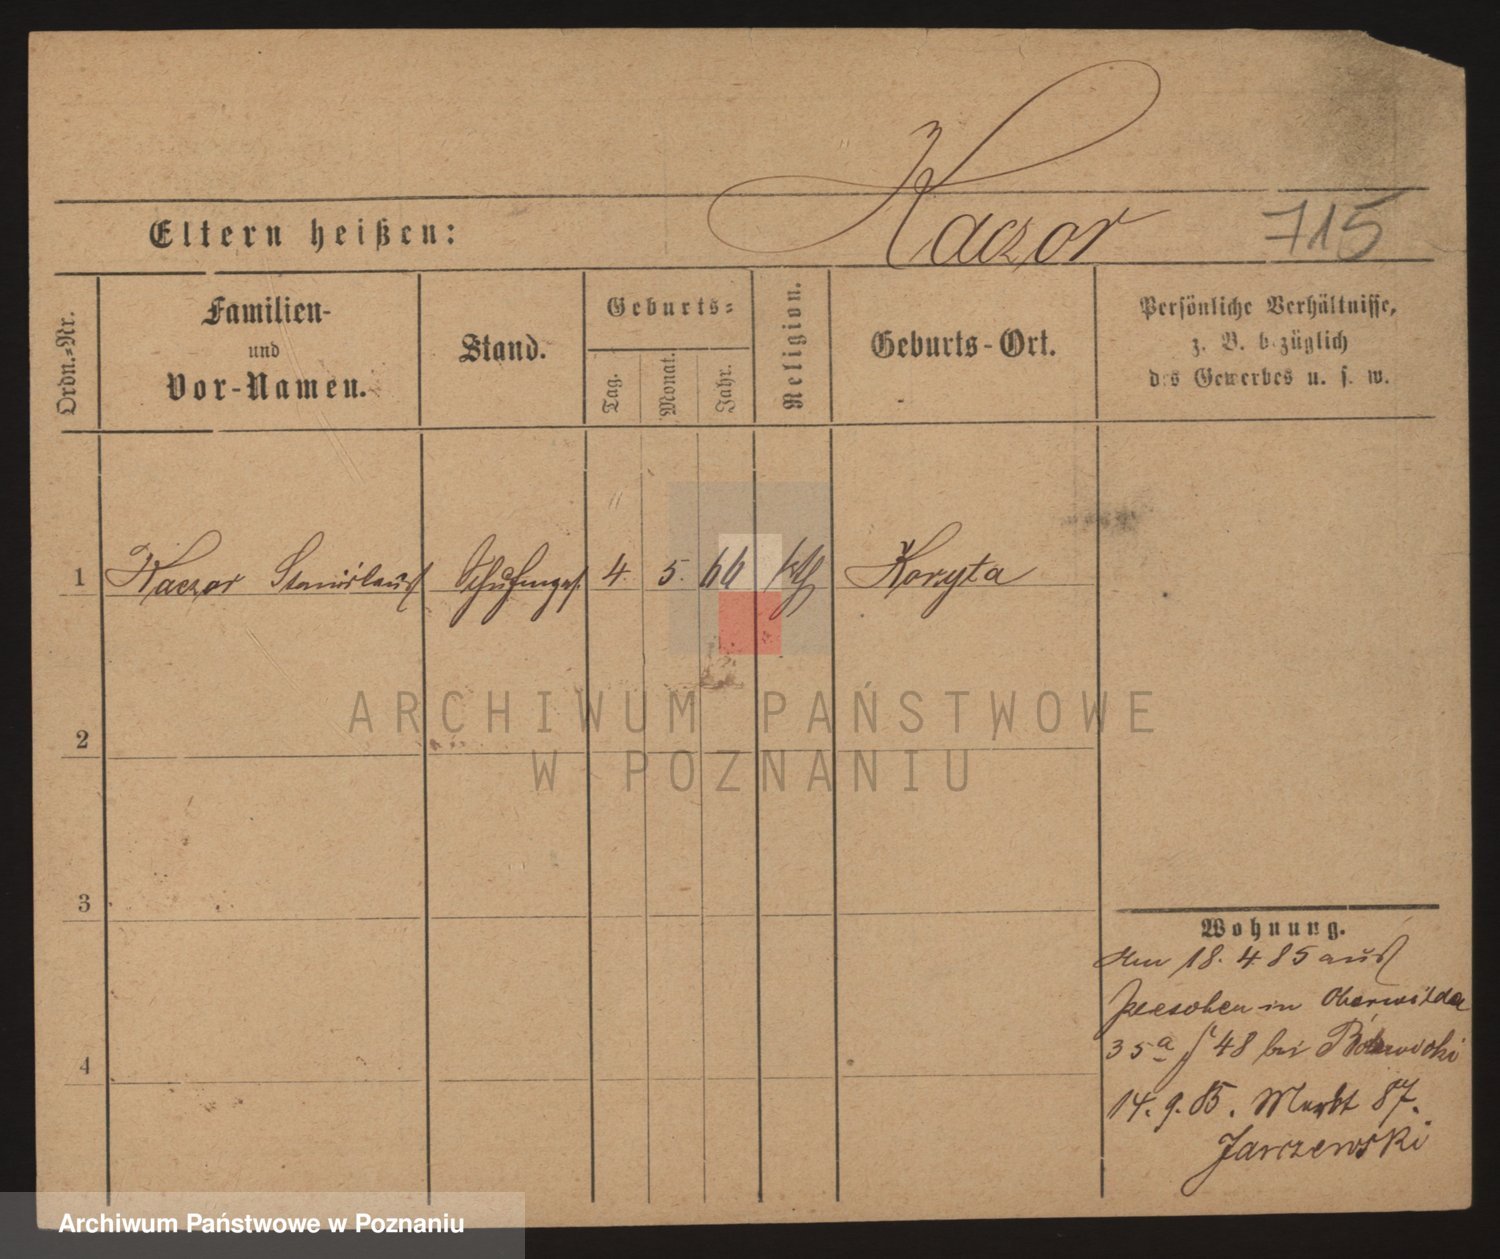 Kaczor
715
Eltern heißen:
Ordn.=Nr.
Familien-
und
Vor-Namen.
Stand.
Geburts=
Tag.
Monat.
Jahr.
Religion.
Geburts-Ort.
Persönliche Verhältnisse,
z. B. bezüglich
des Gewerbes u. s. w.
1 Kaczor Stanislaus 4. 5. 66 kth Koryta
2
3
4
ARCHIWUM PAŃSTWOWE
W POZNANIU
Wohnung.
Am 18. 4 85 aus
in Oberwilda
35a 48 bei
14. 9. 85. Markt 87.
Jarczewski
Archiwum Państwowe w Poznaniu